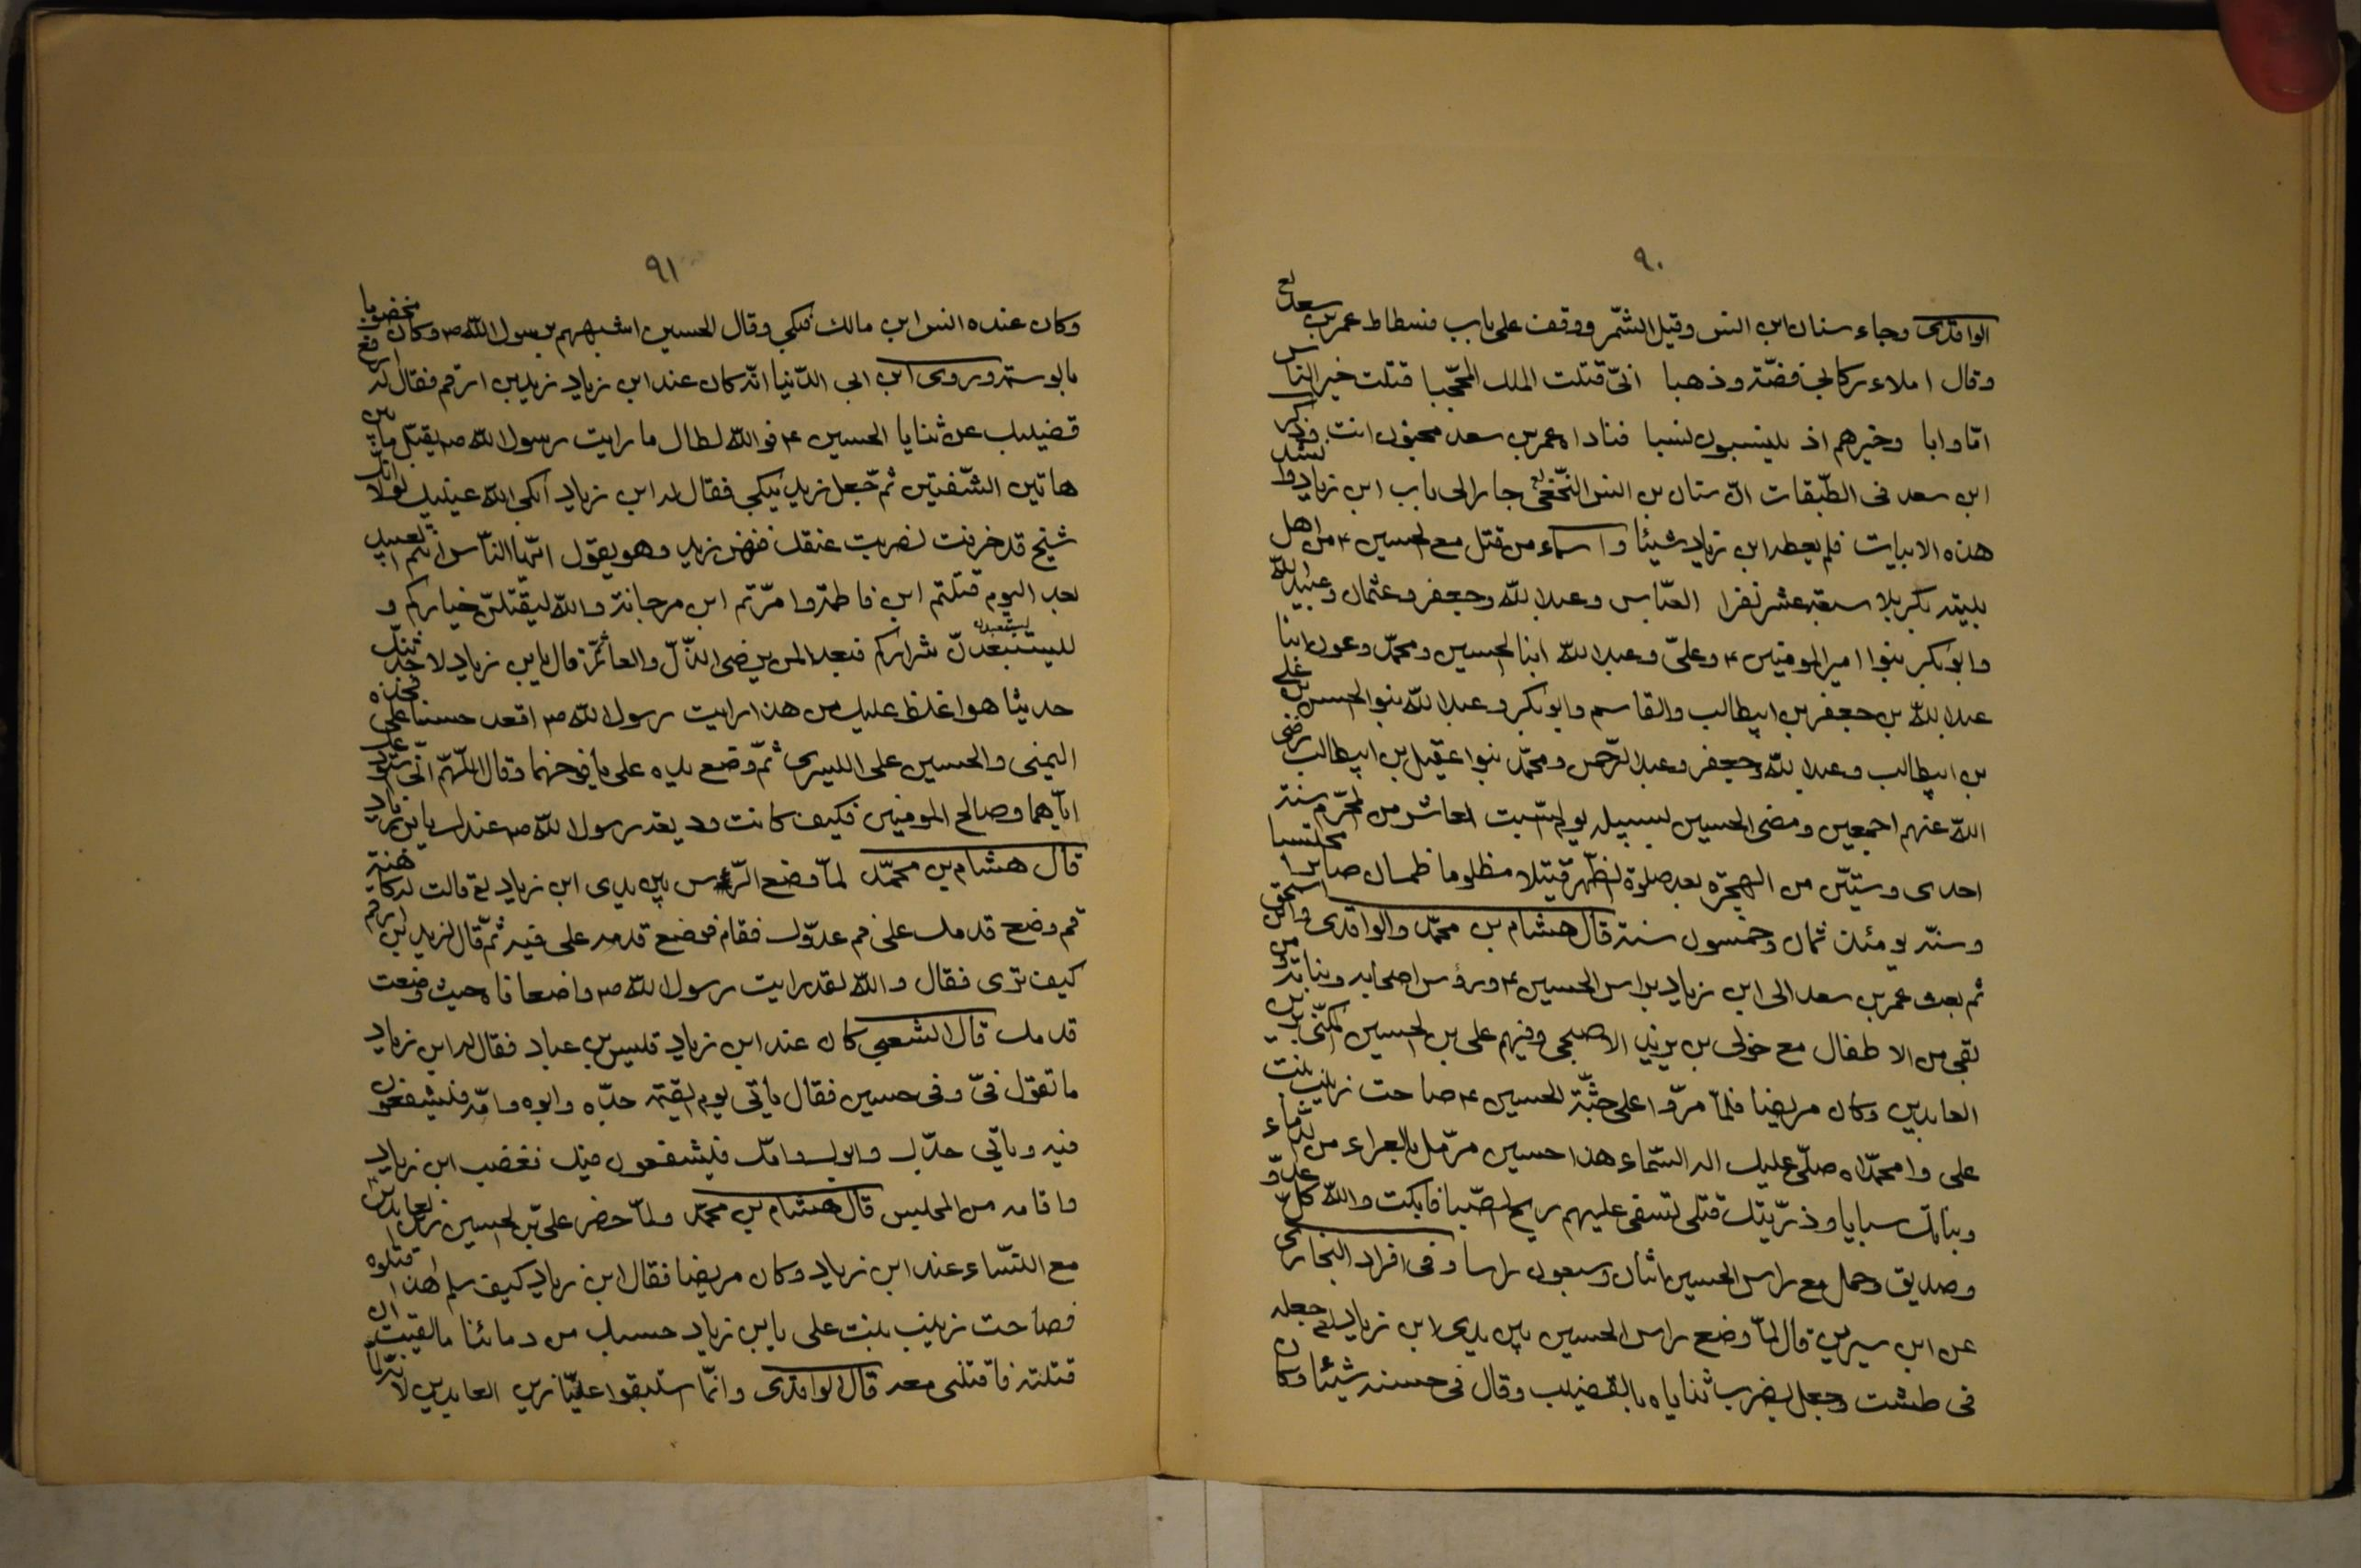 ٩٠
الواقدى وجاء سنان ابن انس وقيل الشّمر ووقف على باب فسطاط عمر بن سعد لع
وقال املاء ركابى فضّة وذهبا انّى قتلت الملك المحجّبا قتلت خير النّاس
امّا وابا وخيرهم اذ ينسبون نسبا فناداه عمر بن سعد مجنون انت وذكر
ابن سعد فى الطّبقات انّ سنان بن انس النّخعى لع جاء الى باب ابن زياد وانشد
هذه الابيات فلم يعطه ابن زياد شيئا واسماء من قتل مع الحسين ع من اهل
بيته بكربلا سبعة عشر نفرا العبّاس وعبد اللّه وجعفر وعثمان وعبيد اللّه
وابو بكر بنوا امير المومنين ع وعلىّ وعبد اللّه ابنا الحسين ومحمّد وعون ابنا
عبد اللّه بن جعفر بن ابيطالب والقاسم وابو بكر وعبد اللّه بنو الحسن بن على
بن ابيطالب وعبد اللّه وجعفر وعبد الرّحمن ومحمّد بنوا عقيل بن ابيطالب رضى
اللّه عنهم اجمعين ومضى الحسين لسبيله يوم السّبت العاشر من المحرّم سنة
احدى وستّين من الهجرة بعد صلوة الظّهر قتيلا مظلوما ظمان صابرا محتسبا
وسنّه يومئذ ثمان وخمسون سنة قال هشام بن محمّد والواقدى وابن اسحق
ثم بعث عمر بن سعد الى ابن زياد براس الحسين ع ورؤس اصحابه وبناته ومن
بقى من الاطفال مع خولى بن يزيد الاصبحى وفيهم على بن الحسين المكنّى بزين
العابدين وكان مريضا فلمّا مرّوا على جثّة الحسين ع صاحت زينب بنت
على وا محمّداه صلّى عليك اله السّماء هذا حسين مرّمل بالعراء من الدّماء
وبناتك سبايا وذرّيتك قتلى تسفى عليهم ريح الصّبا فابكت واللّه كلّ عدوّ
وصديق وحمل مع راس الحسين اثنان وسبعون راسا وفى افراد البخارى
عن ابن سيرين قال لمّا وضع راس الحسين بين يدى ابن زياد لع جعله
فى طشت وجعل يضرب ثناياه بالقضيب وقال فى حسنه شيئا وكان
٩١
وكان عنده انس ابن مالك فبكى وقال الحسين اشبههم برسول اللّه ص وكان مخضوبا
بالوسمة وروى ابن ابى الدّنيا انّه كان عند ابن زياد زيد بن ارقم فقال له ارفع
قضيبك عن ثنايا الحسين ع فواللّه لطال ما رايت رسول اللّه ص يقبّل ما بين
هاتين الشّفتين ثمّ جعل زيد يبكى فقال له ابن زياد ابكى اللّه عينيك لولا انّك
شيخ قد خرفت لضربت عنقك فنهض زيد وهو يقول ايّها النّاس انتم العبيد
بعد اليوم قتلتم ابن فاطمة وامّرتم ابن مرجانة واللّه ليقتلنّ خياركم و
ليستبعدنّ شراركم فبعدا لمن يرضى الذّلّ والعار ثمّ قال يابن زياد لاحدّثنّك
حديثا هو اغلظ عليك من هذا رايت رسول اللّه ص اقعد حسنا على فخذه
اليمنى والحسين على اليسرى ثمّ وضع يده على يافوخهما وقال اللّهمّ انّى استودعك
ايّاهما وصالح المومنين فكيف كانت وديعة رسول اللّه ص عندك يابن زياد
قال هشام بن محمّد لمّا وضع الرّاس بين يدى ابن زياد لع قالت له كاهنة
قم وضع قدمك على فم عدوّك فقام فوضع قدمه على فيه ثمّ قال لزيد ابن ارقم
كيف ترى فقال واللّه لقد رايت رسول اللّه ص واضعا فاه حيث وضعت
قدمك قال الشعبى كان عند ابن زياد قيس بن عباد فقال له ابن زياد
ما تقول فىّ وفى حسين فقال ياتى يوم القيمة جدّه وابوه وامّه فليشفعون
فيه وياتى جدّك وابوك وامّك فليشفعون فيك فغضب ابن زياد
واقامه من المجلس قال هشام بن محمّد ولمّا حضر علىّ بن الحسين زين العابدين
مع النّساء عند ابن زياد وكان مريضا فقال ابن زياد كيف سلم هذا اقتلوه
فصاحت زينب بنت على يابن زياد حسبك من دمائنا ما لقيت ان
قتلته فاقتلنى معه قال الواقدى وانّما استبقوا عليّا زين العابدين لانّه لمّا